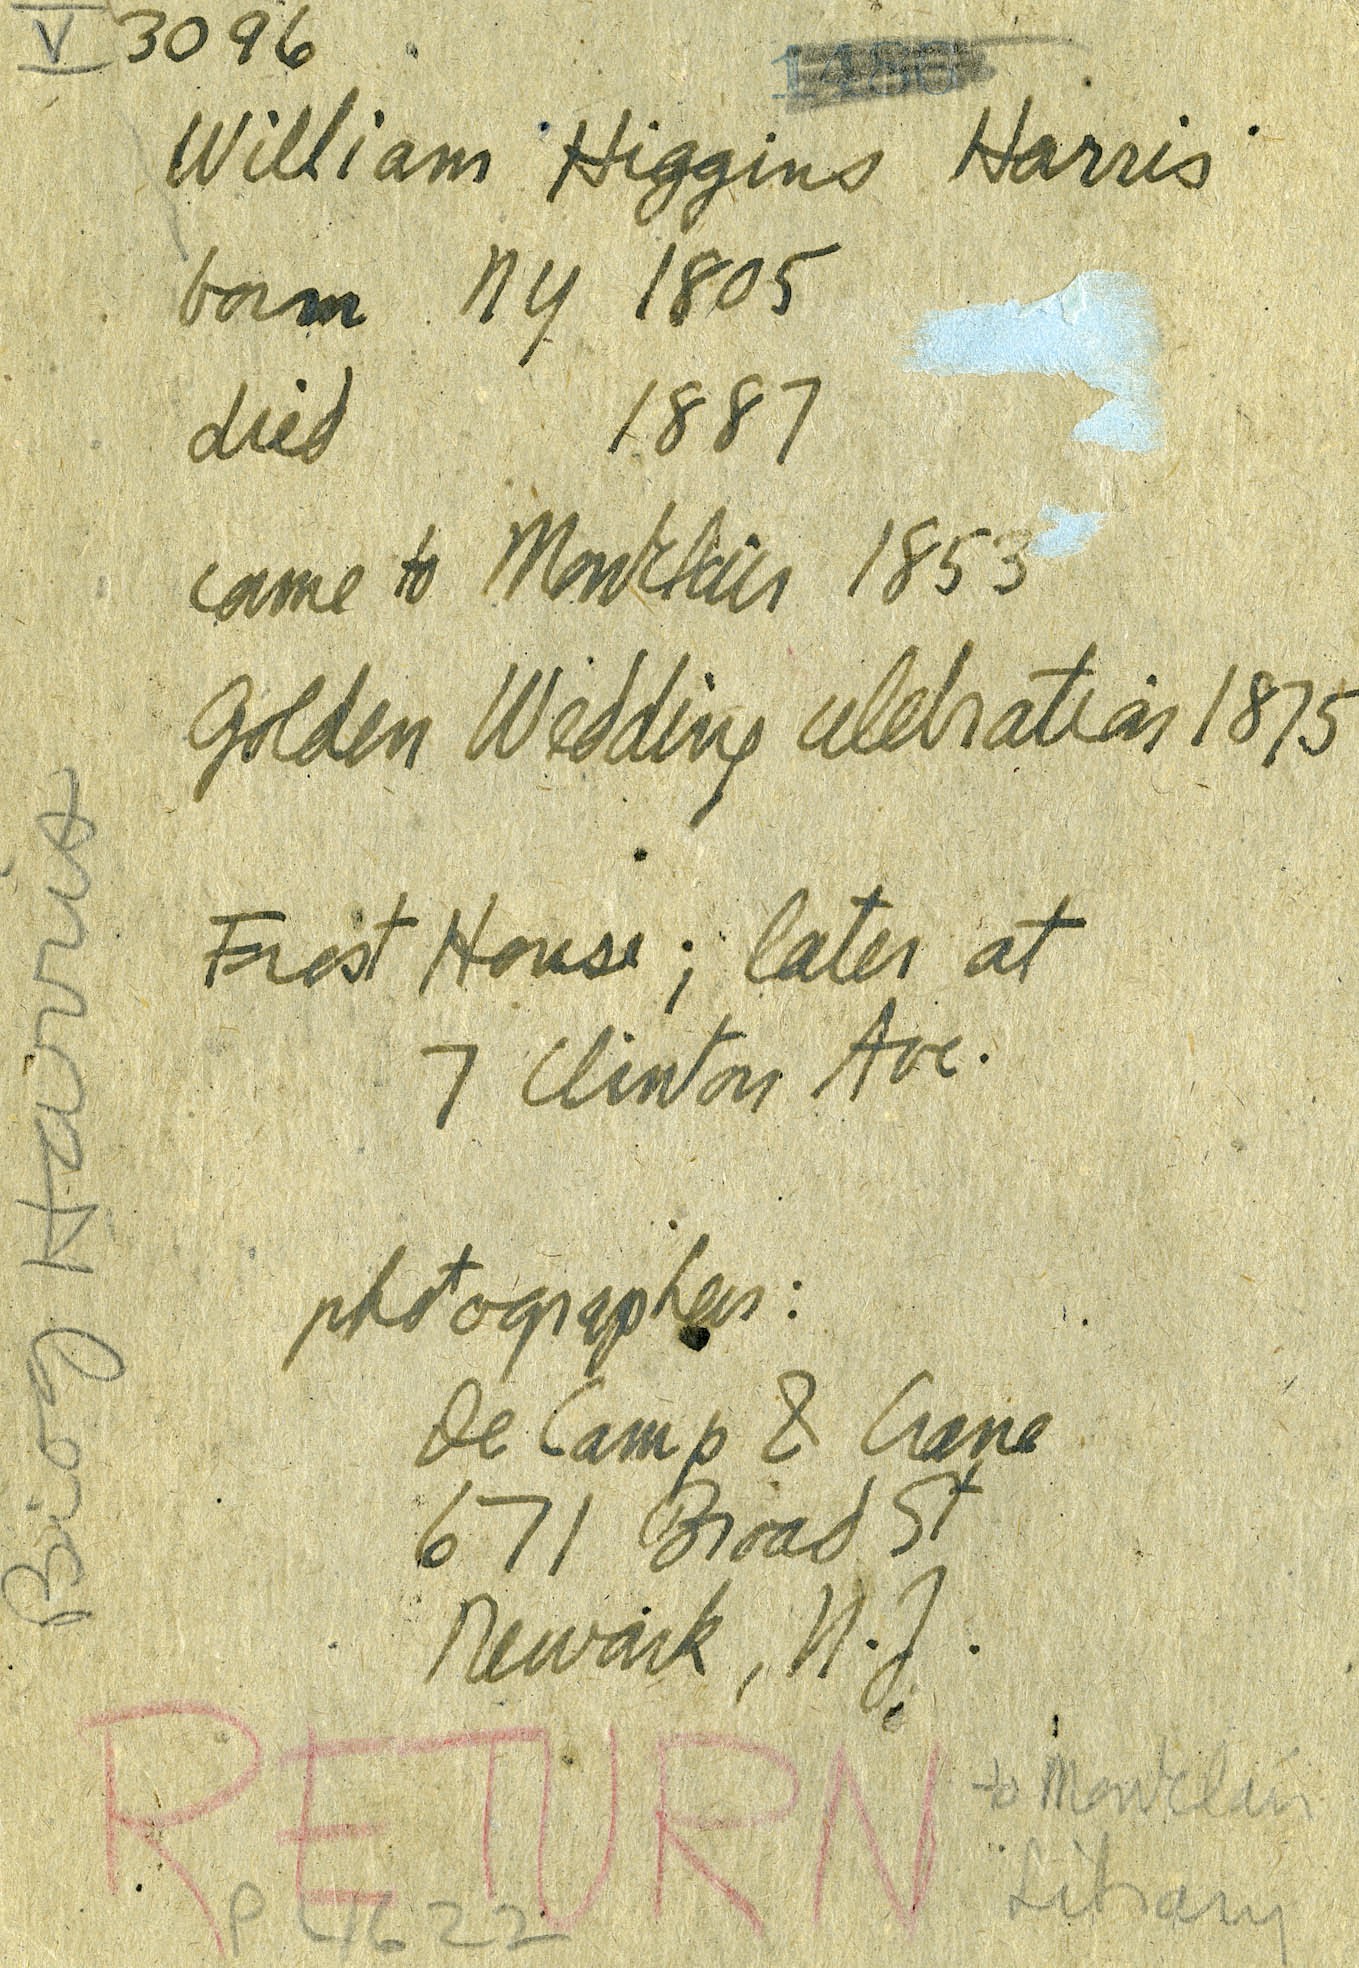 V 3096
William Higgins Harris
born NY 1805
died 1887
came to Montclair 1853
Golden Wedding celebration 1875
Frost House; later at
7 Clinton Ave.
photographer:
DeCamp & Crane
671 Broad St
Newark, N.J.
RETURN to Montclair
Library
Biog Harris